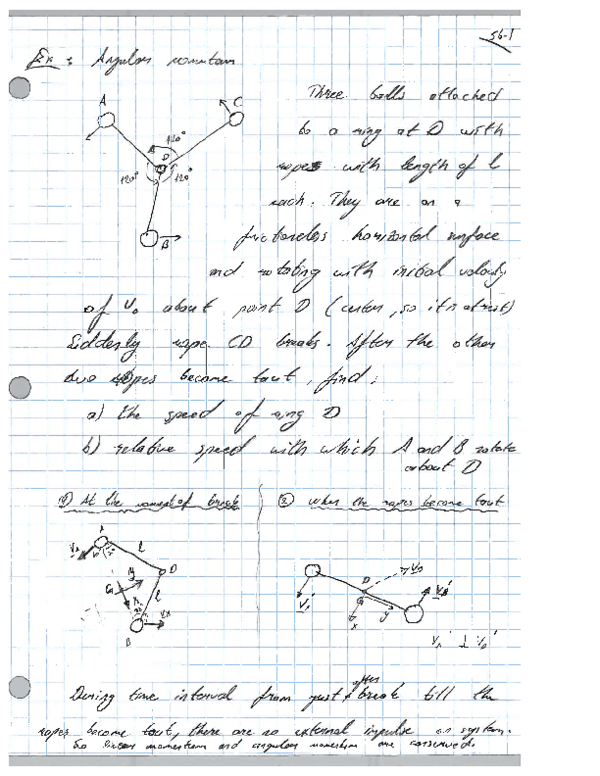 56-1
Ex: Angular momentum
A
C
120°
D
120° 120°
B
Three balls attached
to a ring at D with
ropes with length of l
each. They are on a
frictionless horizontal surface
and rotating with initial velocity
of v₀ about point D (center, so it's at rest)
Suddenly rope CD breaks. After the other
two ropes become taut, find:
a) the speed of ring D
b) relative speed with which A and B rotate
about D
① At the moment of break
② when the ropes become taut
A
l
D
G
y
x
l
B
D
G
x
y
During time interval from just after break till the
ropes become taut, there are no external impulse on system.
So linear momentum and angular momentum are conserved.